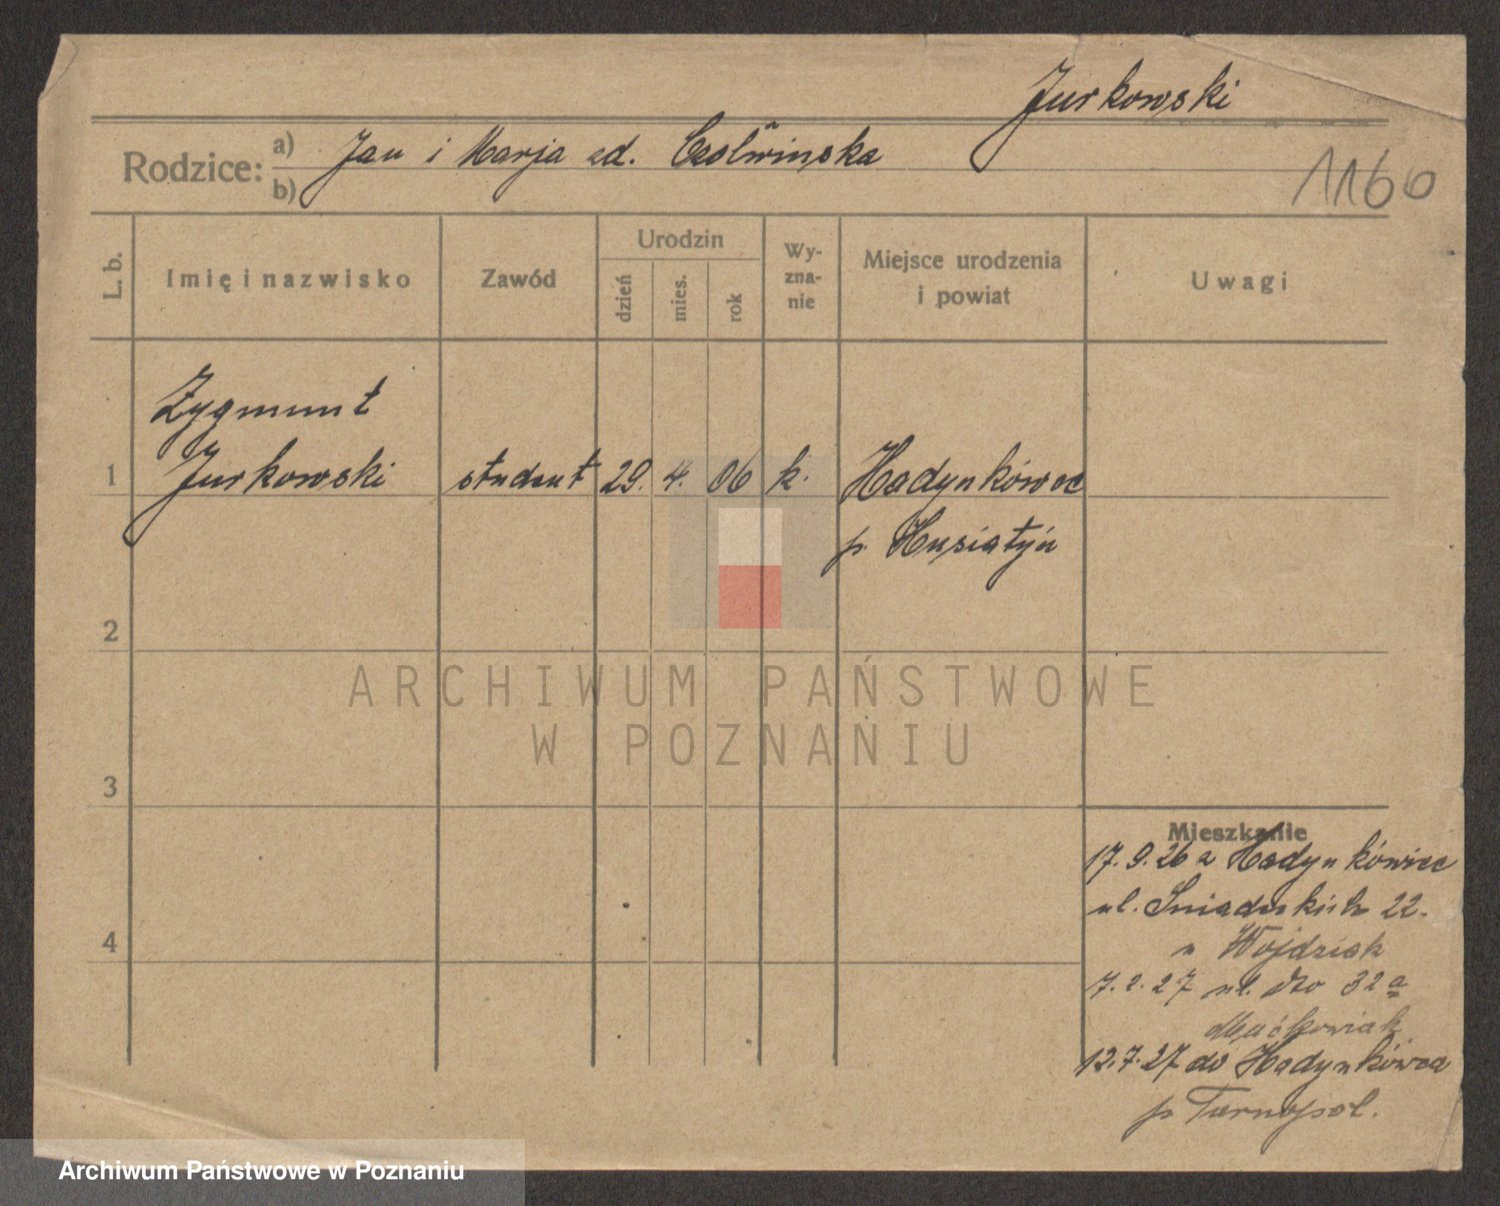 Jurkowski
Rodzice: a) b) Jan i Marja zd. Czolwinska
1160
L. b.
Imię i nazwisko
Zawód
Urodzin
dzień
mies.
rok
Wy-
zna-
nie
Miejsce urodzenia
i powiat
Uwagi
Zygmunt
1 Jurkowski student 29. 4. 06 k. Hadynkówce
p. Husiatyń
2
3
4
Mieszkanie
17. 9. 26 z Hadynkówiec
ul. Śniadeckich 22.
u Wojdziak
27 ul. 32a
Maćkowiak
12. 7. 27 do Hadynkówca
p Tarnopol.
ARCHIWUM PAŃSTWOWE
W POZNANIU
Archiwum Państwowe w Poznaniu